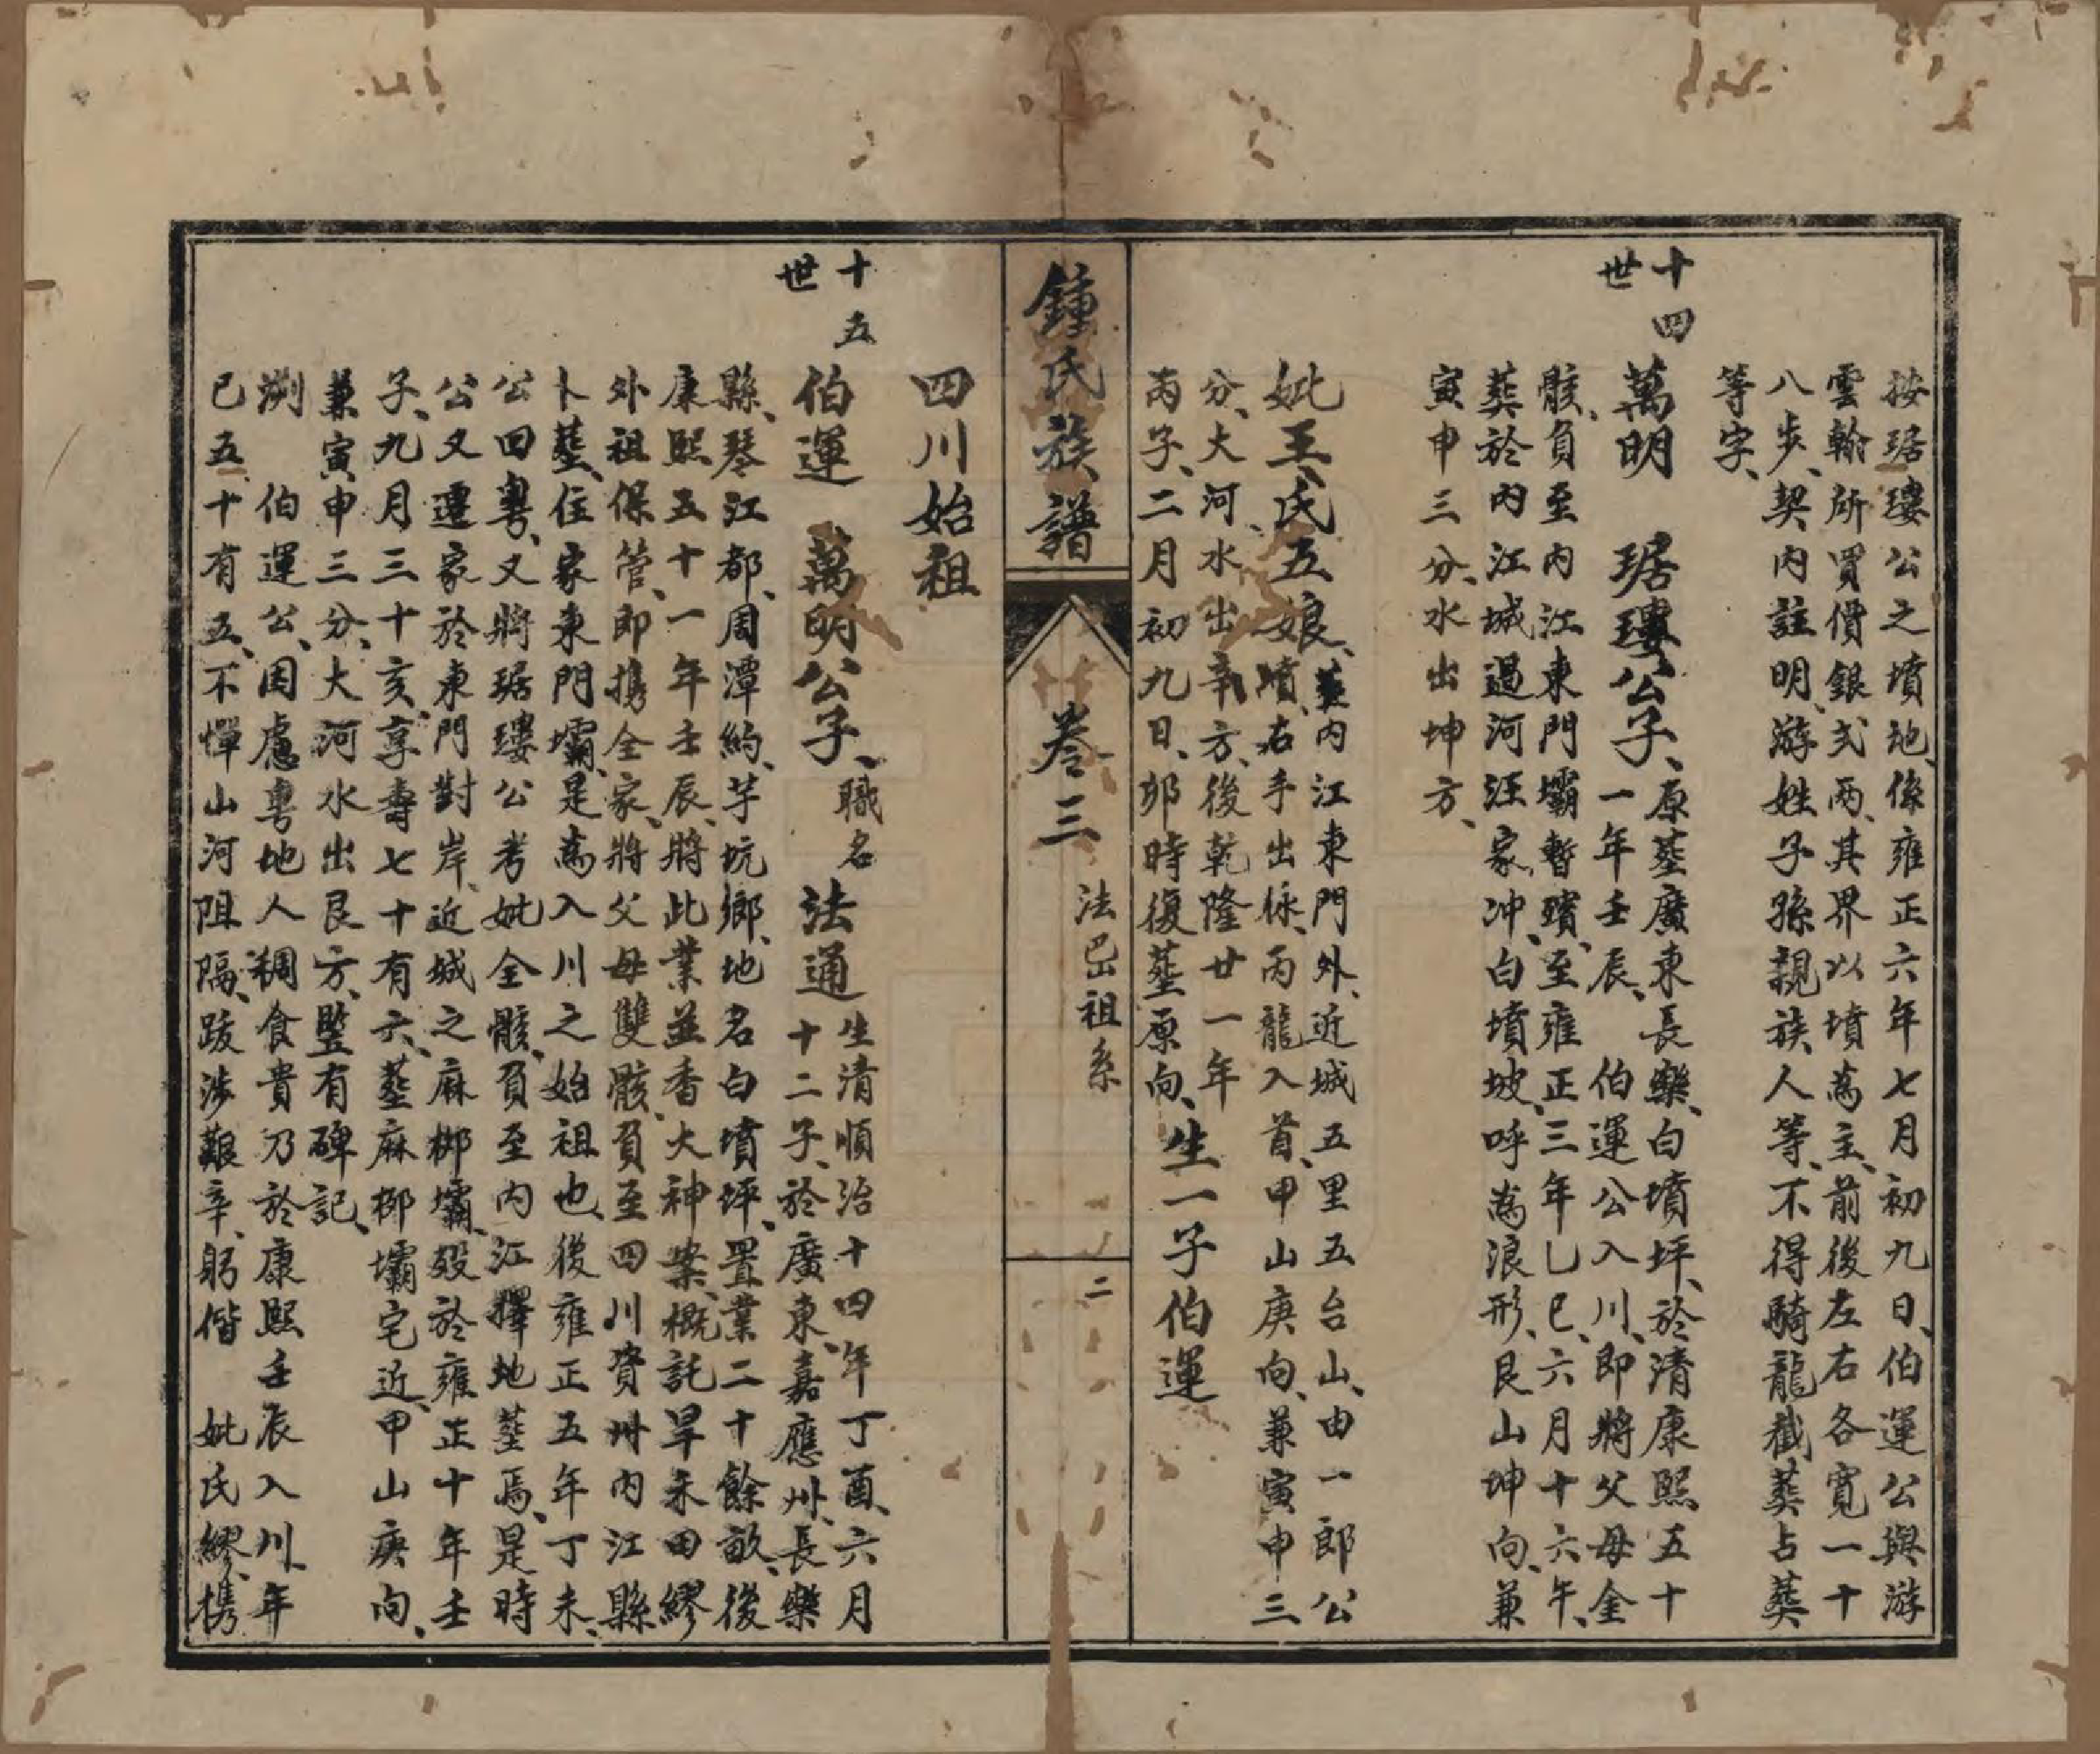 按琚瓊公之墳地、係雍正六年七月初九日、伯運公與游
雲翰所買價銀弍兩、其界以墳為主、前後左右各寬一十
八步、契内註明、游姓子孫親族、人等、不得騎龍截葬占葬
等字、
十四世
萬明　琚瓊公子、原塟廣東長樂、白墳坪、於清康熙五十
一年壬辰、　伯運公入川、即將父母金
骸、負至内江東門壩暫殯、至雍正三年乙巳、六月十六午、
葬於内江城過河汪家冲、白墳坡、呼為浪形、艮山坤向、兼
寅申三分、水出坤方、
妣王氏五娘、葬内江東門外、近城五里五台山、由一郎公
墳、右手出脉、丙龍入首、甲山庚向、兼寅申三
分、大河、水出辛方、後乾隆廿一年
丙子、二月初九日、卯時復塟原向、生一子伯運
鍾氏族譜
卷三
法巴祖系
二
四川始祖
十五世
伯運　萬明公子、職名法通　生清順治十四年丁酉、六月
十二子、於廣東、嘉應州、長樂
縣、琴江都、周潭約、芋坑鄉、地名白墳坪、置業二十餘畝、後
康熙五十一年壬辰、將此業並香火神案、概託旱禾田繆
外祖保管、即携全家、將父母雙骸、負至四川資州内江縣
卜塟、住家東門壩、是為入川之始祖也、後雍正五年丁未、
公回粵、又將琚瓊公考妣全骸、負至内江擇地塟焉、是時
公又遷家於東門對岸、近城之麻柳壩、殁於雍正十年壬
子、九月三十亥、享壽七十有六、塟麻柳壩宅近、甲山庚向、
兼寅申三分、大河水出艮方、豎有碑記、
洌　伯運公、因慮粵地人稠食貴乃於康熙壬辰入川、年
已五十有五、不憚山河阻隔、跋涉艱辛、躬偕　妣氏繆、携